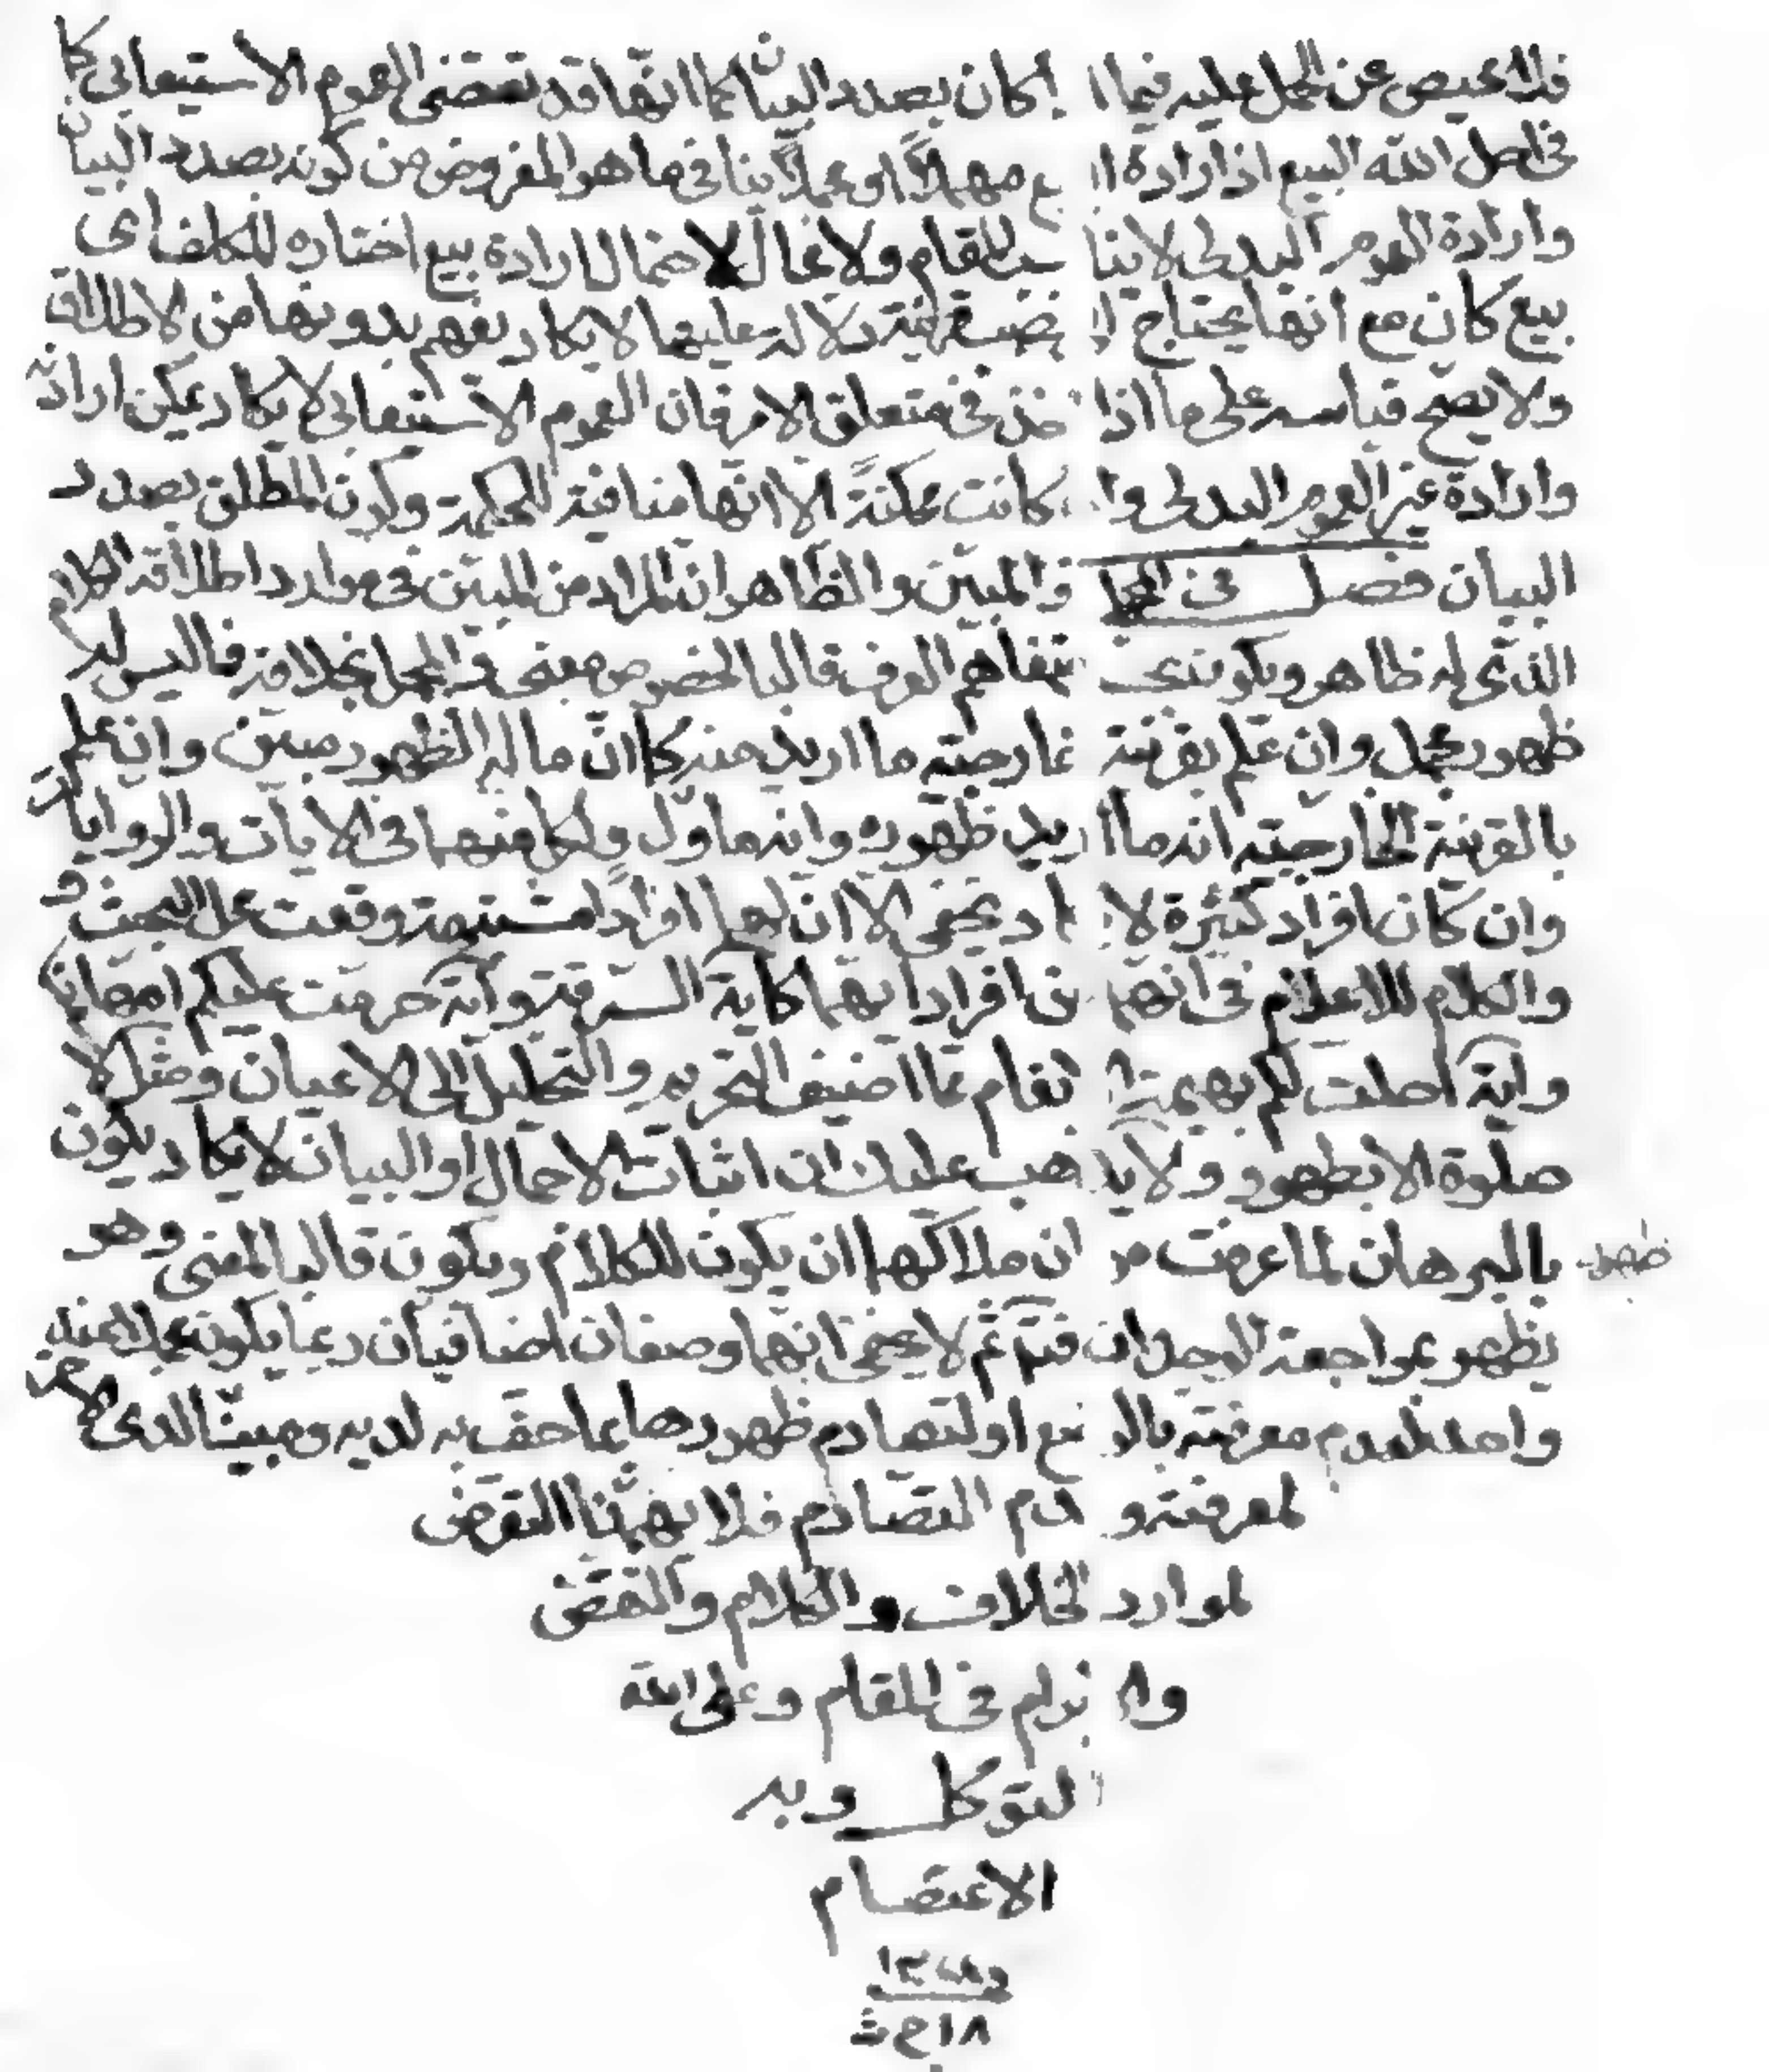 فلا محيص عن الحمل عليه فيما اذا كان بصدد البيان كما انها قد تقتضى العموم الاستيعابى كما
فى احل الله البيع اذ ارادة البيع مهملاً او مجملاً ينافى ما هو المفروض من كونه بصدد البيان
وارادة العموم البدلى لا يناسب المقام ولا مجال لاحتمال ارادة بيع اختاره المكلف اى
بيع كان مع انها يحتاج الى نصب قرينة دلالة عليها لا يكاد يفهم بدونها من الاطلاق
ولا يصح قياسه على ما اذا اخذ فى متعلق الامر فان العموم الاستيعابى لا يكاد يمكن ارادته
وارادة غير العموم البدلى وان كانت ممكنةً الا انها منافية للحكمة وكون المطلق بصدد
البيان فصل فى المجمل والمبين والظاهر ان المراد من المبين فى موارد اطلاقه الكلام
الذى له ظاهر ويكون بحسب متفاهم العرف قالبا لخصوص معنى والمجمل بخلافه فما ليس له
ظهور مجمل وان علم بقرينة خارجية ما اريد منه كما ان ما له الظهور مبين وان علم
بالقرينة الخارجية انه ما اريد ظهوره وانه ماول ولكل منهما فى الايات والروايات
وان كان افراد كثيرة لا تكاد تخفى الا ان لهما افراداً مشتبهة وقعت محل البحث و
والكلام للاعلام فى انهما من افراد ايهما كاية السرقة وآية حرمت عليكم امهاتكم
واية احلت لكم بهيمة الانعام مما اضيف التحريم والتحليل الى الاعيان ومثل لا
صلوة الا بطهور ولا يذهب عليك ان اثبات الاجمال او البيان لا يكاد يكون
بالبرهان لما عرفت من ان ملاكهما ان يكون للكلام ويكون قالبا لمعنى وهو
ظهور
يظهر بمراجعة الوجدان فتدبر ثم لا يخفى انهما وصفان اضافيان ربما يكون مجملا عند
واحد لعدم معرفته بالوضع او لتصادم ظهوره بما حف به لديه ومبينا لدى الاخر
لمعرفته وعدم التصادم فلا يهمنا التعرض
لموارد الخلاف والكلام والنقض
والابرام فى المقام وعلى الله
التوكل وبه
الاعتصام
١٨ ج ث